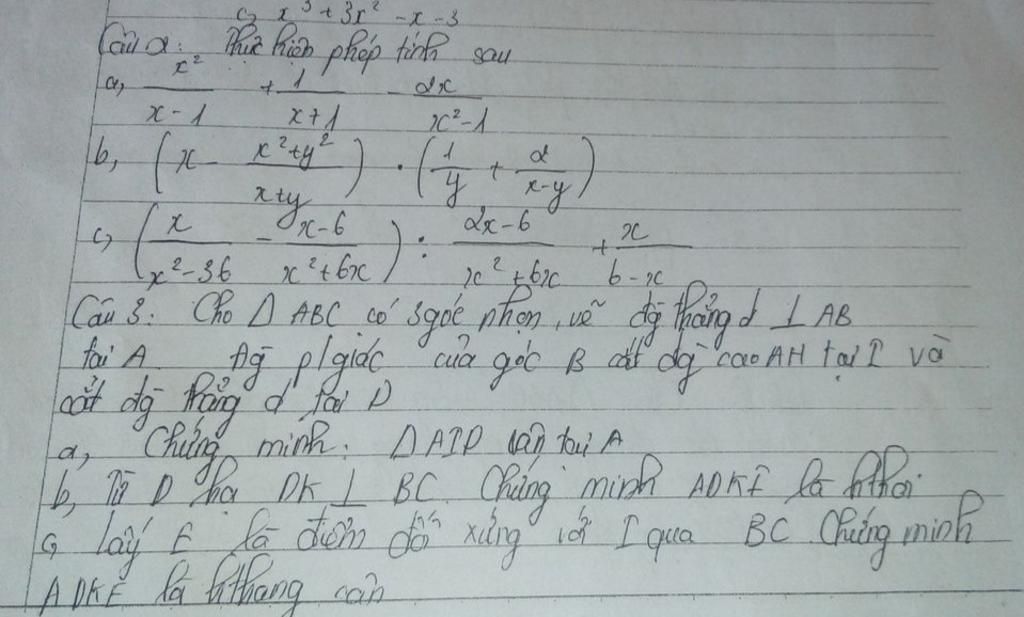 c, x³ + 3x² - x - 3
Câu 2: Thực hiện phép tính sau
a, x²/(x-1) + 1/(x+1) - 2x/(x²-1)
b, (x - (x²+y²)/(x+y)) . (1/y + 2/(x-y))
c, (x/(x²-36) - (x-6)/(x²+6x)) : (2x-6)/(x²+6x) + x/(6-x)
Câu 3: Cho Δ ABC có 3 góc nhọn, vẽ đg thẳng d ⊥ AB
tại A Đg p/giác của góc B cắt đg cao AH tại I và
cắt đg thẳng d tại D
a, Chứng minh: Δ AID cân tại A
b, Từ D hạ DK ⊥ BC. Chứng minh ADKI là hthoi
c, lấy E là điểm đối xứng với I qua BC Chứng minh
ADKE là hthang cân